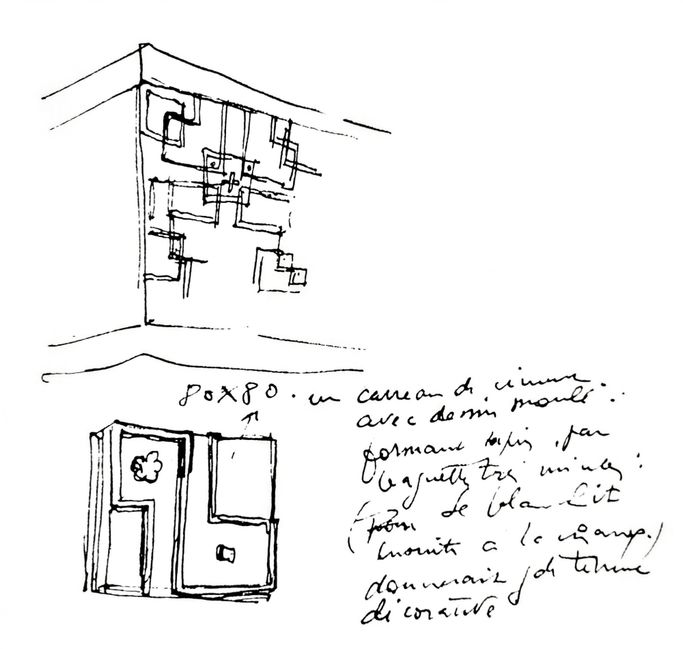 80X80 . un carreau de ciment.
avec dessin moulé .
formant tapis, par
baguettes très minces :
( se blanchit
ensuite à la chaux.)
donnerait
décorative